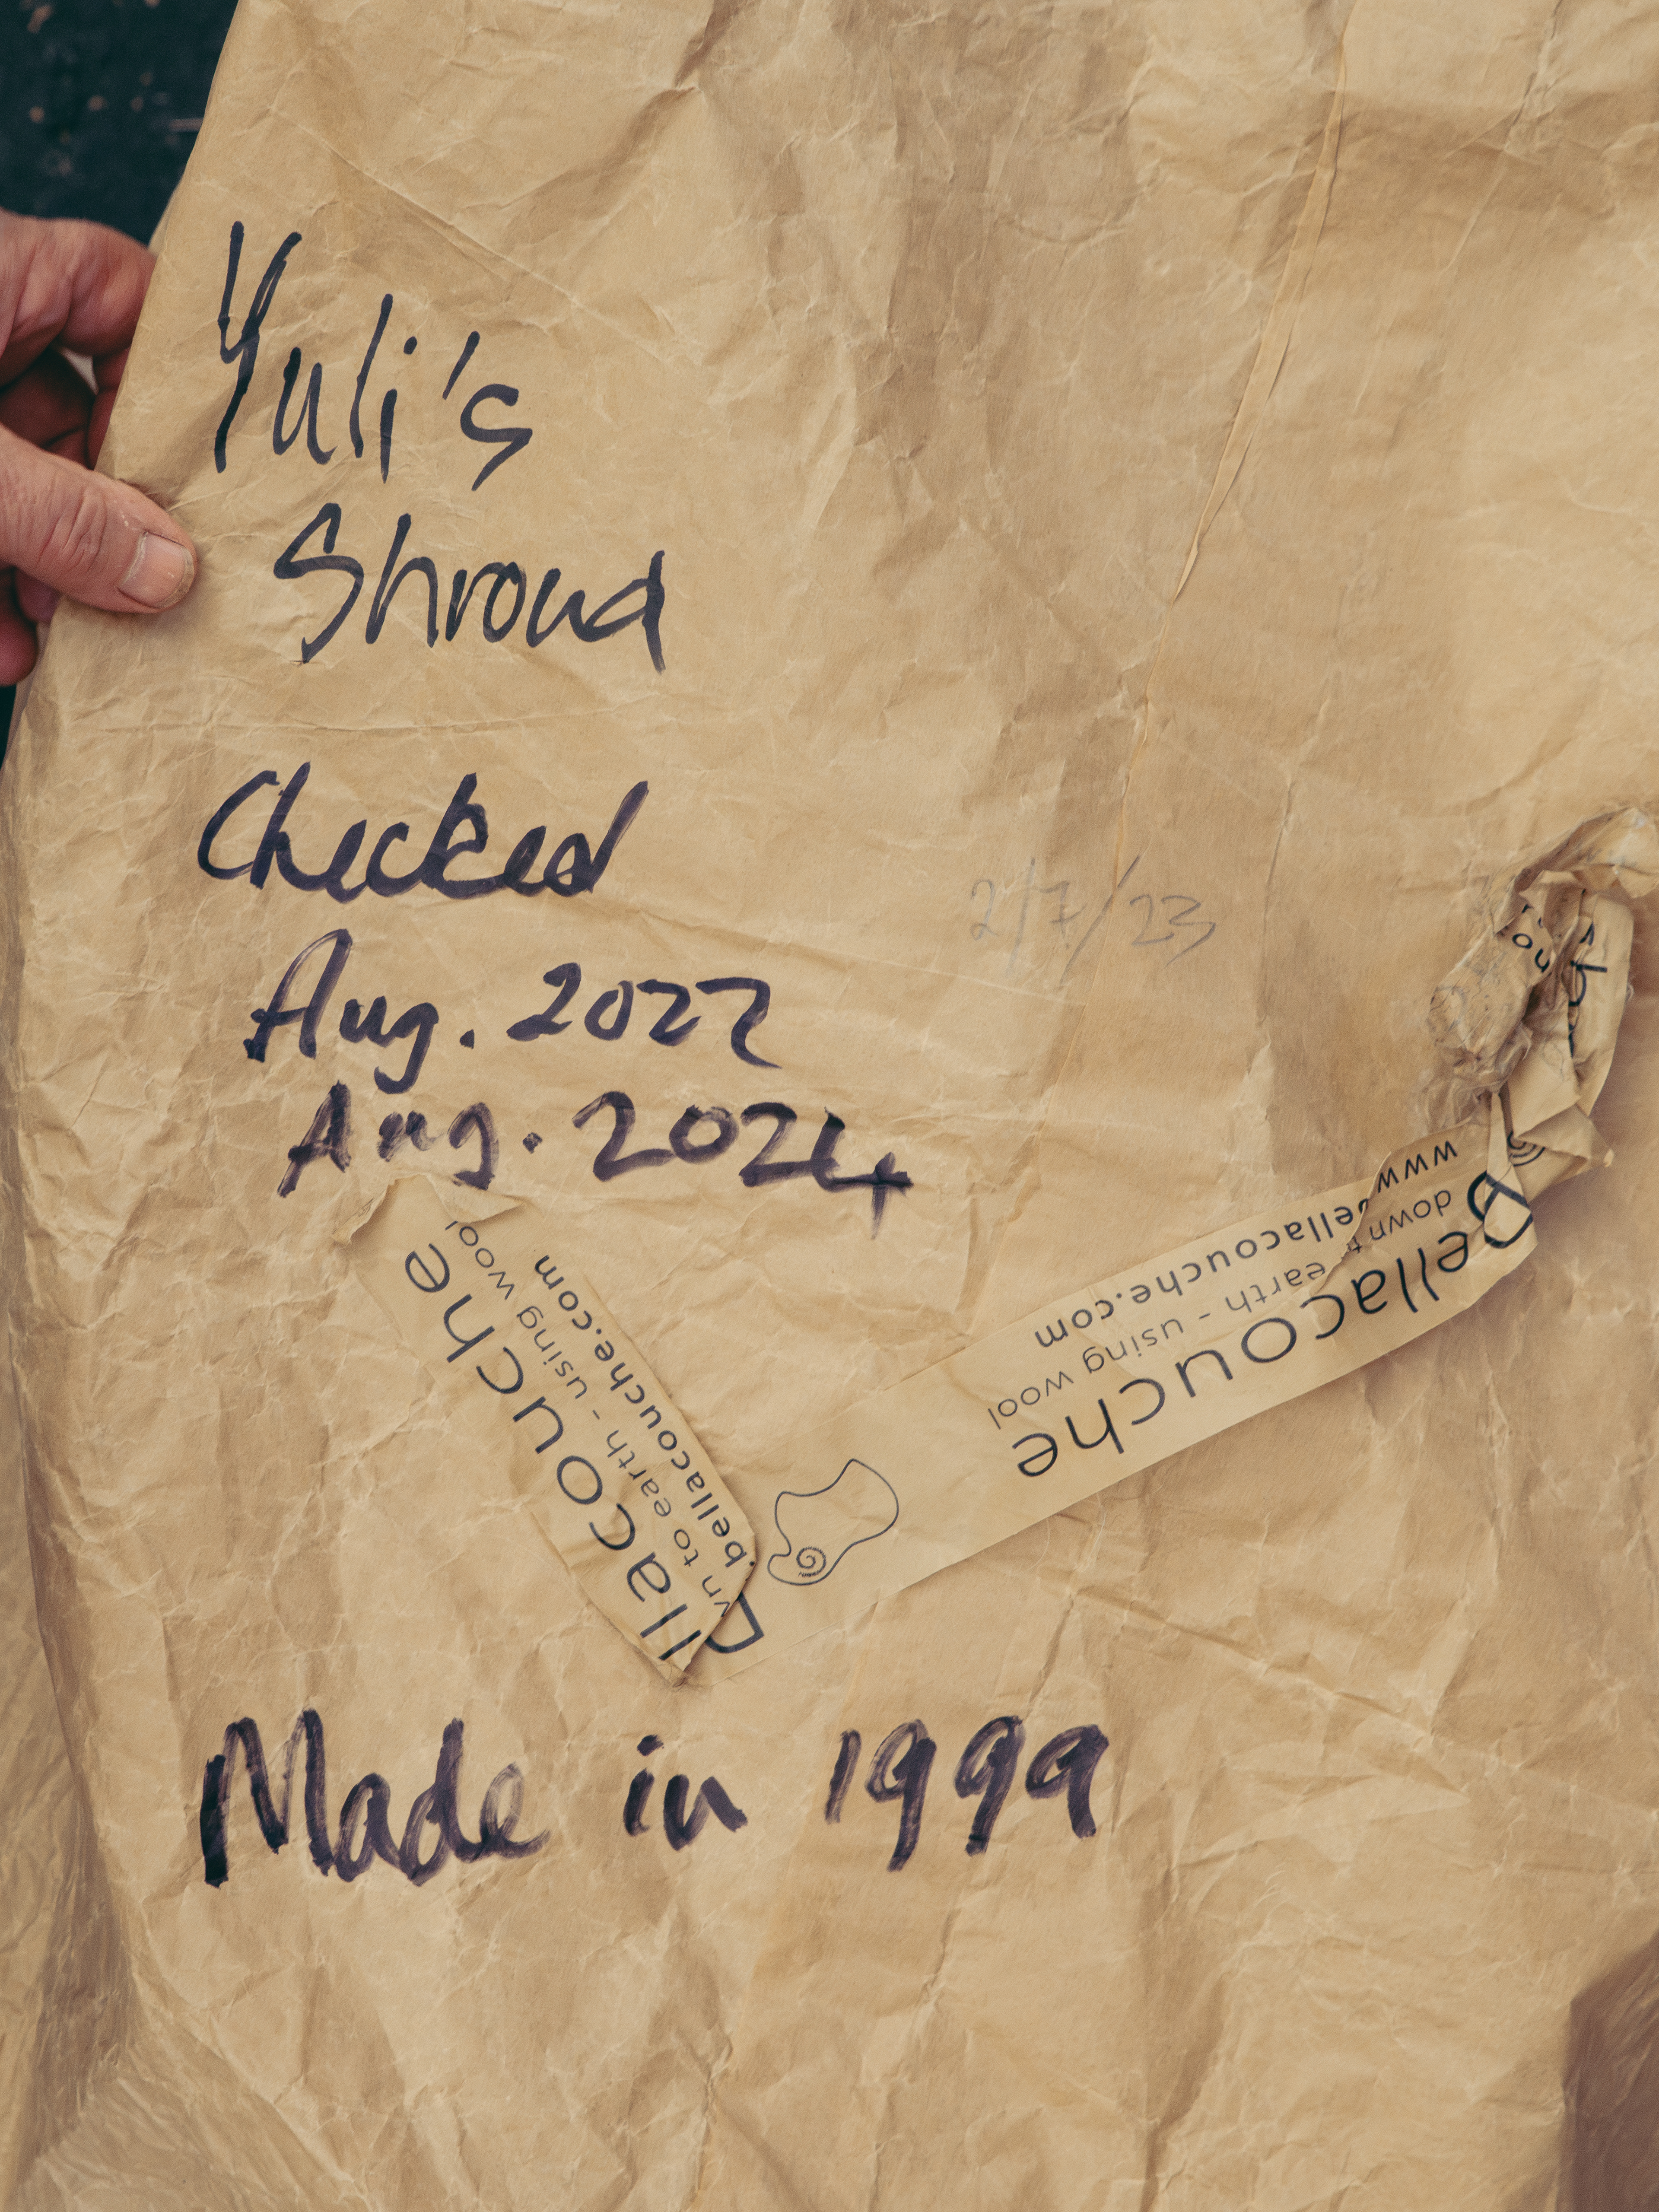 Yuli's
Shroud
Checked
2/7/23
Aug. 2022
Aug. 2024
llacouche
to earth - using wool
bellacouche.com
Bellacouche
down t earth - using wool
www.bellacouche.com
Made in 1999